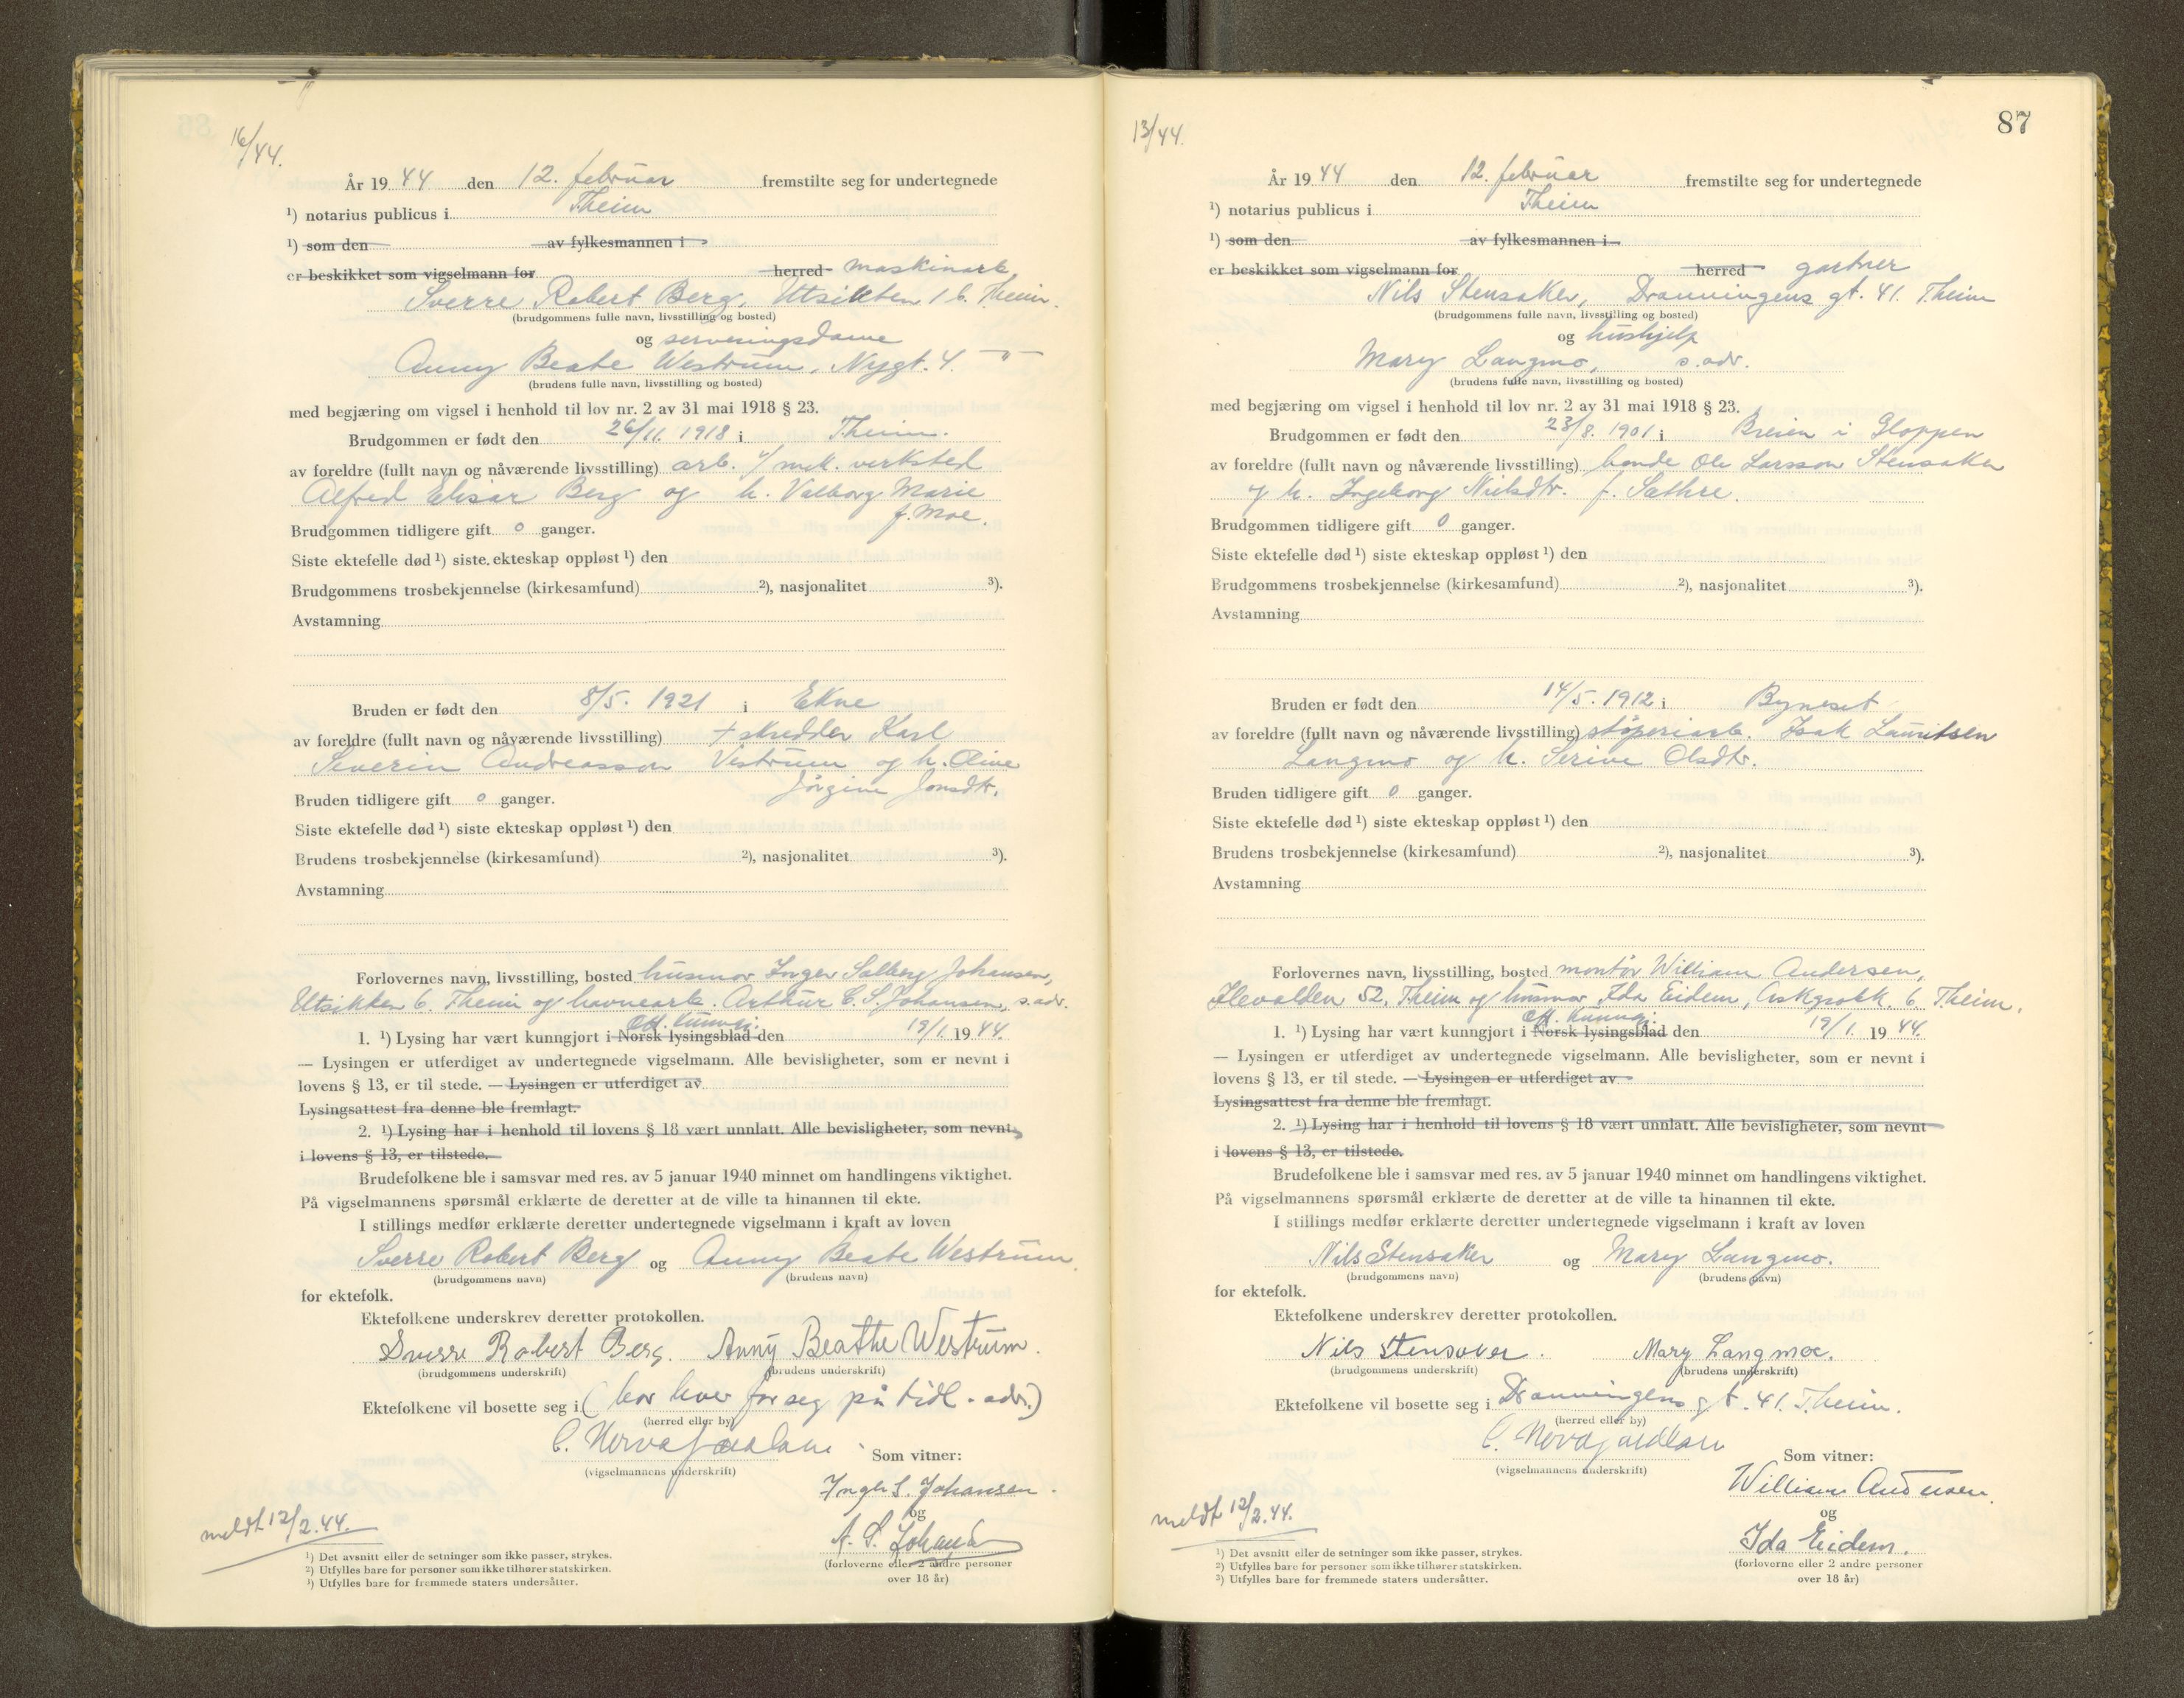 16/44.
År 19 44 den 12. februar fremstilte seg for undertegnede
¹) notarius publicus i T.heim
¹) som den av fylkesmannen i
er beskikket som vigselmann for herred maskinarb.
Sverre Robert Berg, Utsikten 16. T.heim.
(brudgommens fulle navn, livsstilling og bosted)
og serveringsdame
Anny Beate Westrum, Nygt. 4. —"—
(brudens fulle navn, livsstilling og bosted)
med begjæring om vigsel i henhold til lov nr. 2 av 31 mai 1918 § 23.
Brudgommen er født den 26/11. 1918 i T.heim.
av foreldre (fullt navn og nåværende livsstilling) arb. v/ mek. verksted
Alfred Elisar Berg og h. Valborg Marie
f. Moe.
Brudgommen tidligere gift 0 ganger.
Siste ektefelle død ¹) siste ekteskap oppløst ¹) den
Brudgommens trosbekjennelse (kirkesamfund) ²), nasjonalitet ³).
Avstamning
Bruden er født den 8/5. 1921 i Ekne
av foreldre (fullt navn og nåværende livsstilling) + skredder Karl
Severin Andreasson Vestrum og h. Oline
Jørgine Jonsdtr.
Bruden tidligere gift 0 ganger.
Siste ektefelle død ¹) siste ekteskap oppløst ¹) den
Brudens trosbekjennelse (kirkesamfund) ²), nasjonalitet ³).
Avstamning
Forlovernes navn, livsstilling, bosted husmor Inger Solberg Johansen,
Utsikten 6. T.heim og havnearb. Arthur C. S. Johansen, s. adr.
Off. kunngj.
1. ¹) Lysing har vært kunngjort i Norsk lysingsblad den 19/1. 19 44.
— Lysingen er utferdiget av undertegnede vigselmann. Alle bevisligheter, som er nevnt i
lovens § 13, er til stede. — Lysingen er utferdiget av
Lysingsattest fra denne ble fremlagt.
2. ¹) Lysing har i henhold til lovens § 18 vært unnlatt. Alle bevisligheter, som nevnt
i lovens § 13, er tilstede.
Brudefolkene ble i samsvar med res. av 5 januar 1940 minnet om handlingens viktighet.
På vigselmannens spørsmål erklærte de deretter at de ville ta hinannen til ekte.
I stillings medfør erklærte deretter undertegnede vigselmann i kraft av loven
Sverre Robert Berg og Anny Beate Westrum.
(brudgommens navn) (brudens navn)
for ektefolk.
Ektefolkene underskrev deretter protokollen.
Sverre Robert Berg. Anny Beathe Westrum.
(brudgommens underskrift) (brudens underskrift)
Ektefolkene vil bosette seg i (bor hver for seg på tidl. adr.)
(herred eller by)
C.
(vigselmannens underskrift)
Som vitner:
Inger S. Johansen.
og
A. S. Johansen
(forloverne eller 2 andre personer
over 18 år)
meldt 12/2.44.
¹) Det avsnitt eller de setninger som ikke passer, strykes.
²) Utfylles bare for personer som ikke tilhører statskirken.
³) Utfylles bare for fremmede staters undersåtter.
87
13/44.
År 19 44 den 12. februar fremstilte seg for undertegnede
¹) notarius publicus i T.heim
¹) som den av fylkesmannen i
er beskikket som vigselmann for herred gartner
Nils Stensaker, Dronningens gt. 41. T.heim
(brudgommens fulle navn, livsstilling og bosted)
og hushjelp
Mary Langmo, s. adr.
(brudens fulle navn, livsstilling og bosted)
med begjæring om vigsel i henhold til lov nr. 2 av 31 mai 1918 § 23.
Brudgommen er født den 23/8. 1901 i Breien i Gloppen
av foreldre (fullt navn og nåværende livsstilling) bonde Ole Larsson Stensaker
og h. Ingeborg Nielsdtr. f. Sathre.
Brudgommen tidligere gift 0 ganger.
Siste ektefelle død ¹) siste ekteskap oppløst ¹) den
Brudgommens trosbekjennelse (kirkesamfund) ²), nasjonalitet ³).
Avstamning
Bruden er født den 14/5. 1912 i Byneset
av foreldre (fullt navn og nåværende livsstilling) støperiarb. Isak Lauritsen
Langmo og h. Serine Olsdtr.
Bruden tidligere gift 0 ganger.
Siste ektefelle død ¹) siste ekteskap oppløst ¹) den
Brudens trosbekjennelse (kirkesamfund) ²), nasjonalitet ³).
Avstamning
Forlovernes navn, livsstilling, bosted montør William Andersen,
Ilevolden 52, T.heim og husmor Ida Eidem, 6. T.heim.
Off. kunngj.
1. ¹) Lysing har vært kunngjort i Norsk lysingsblad den 19/1. 19 44.
— Lysingen er utferdiget av undertegnede vigselmann. Alle bevisligheter, som er nevnt i
lovens § 13, er til stede. — Lysingen er utferdiget av
Lysingsattest fra denne ble fremlagt.
2. ¹) Lysing har i henhold til lovens § 18 vært unnlatt. Alle bevisligheter, som nevnt
i lovens § 13, er tilstede.
Brudefolkene ble i samsvar med res. av 5 januar 1940 minnet om handlingens viktighet.
På vigselmannens spørsmål erklærte de deretter at de ville ta hinannen til ekte.
I stillings medfør erklærte deretter undertegnede vigselmann i kraft av loven
Nils Stensaker og Mary Langmo.
(brudgommens navn) (brudens navn)
for ektefolk.
Ektefolkene underskrev deretter protokollen.
Nils Stensaker. Mary Langmoe.
(brudgommens underskrift) (brudens underskrift)
Ektefolkene vil bosette seg i Dronningens gt. 41. T.heim.
(herred eller by)
C.
(vigselmannens underskrift)
Som vitner:
William Andersen.
og
Ida Eidem.
(forloverne eller 2 andre personer
over 18 år)
meldt 12/2.44.
¹) Det avsnitt eller de setninger som ikke passer, strykes.
²) Utfylles bare for personer som ikke tilhører statskirken.
³) Utfylles bare for fremmede staters undersåtter.